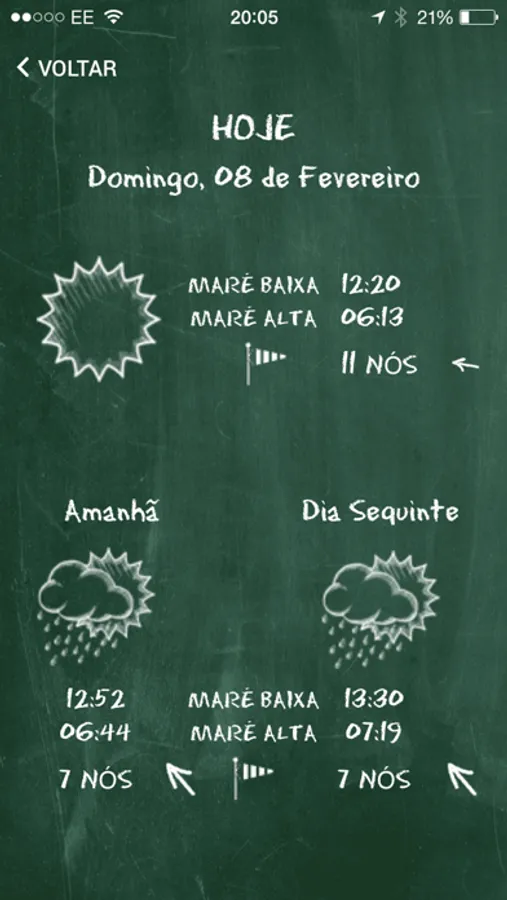 EE 20:05 21%
VOLTAR
HOJE
Domingo, 08 de Fevereiro
MARÉ BAIXA 12:20
MARÉ ALTA 06:13
11 NÓS
Amanhã Dia Seguinte
12:52 MARÉ BAIXA 13:30
06:44 MARÉ ALTA 07:19
7 NÓS 7 NÓS